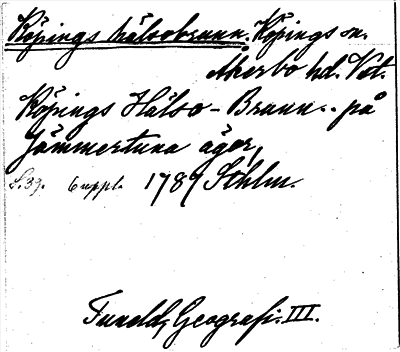 Köpings hälsobrunn. Köpings sn.
Åkerbo hd. Vst.
Köpings Hälso-Brunn.. på
Jämmertuna äger,
S. 39. 6 uppl. 1789 Sthlm.
Tuneld, Geografi. III.